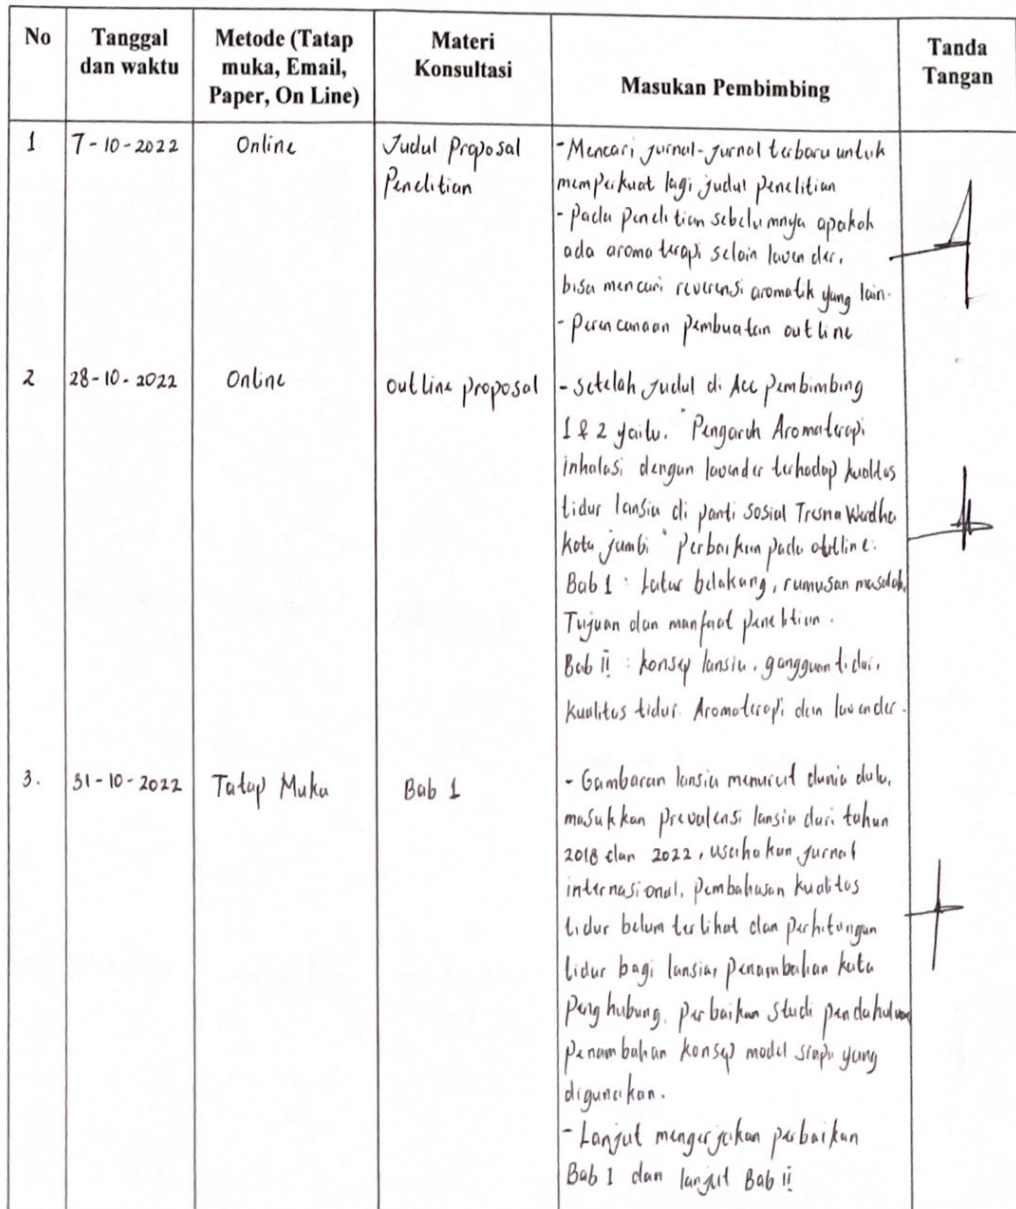 No
Tanggal
dan waktu
Metode (Tatap
muka, Email,
Paper, On Line)
Materi
Konsultasi
Masukan Pembimbing
Tanda
Tangan
1
7-10-2022
Online
Judul Proposal
Penelitian
- Mencari jurnal-jurnal terbaru untuk
memperkuat lagi judul penelitian
- Pada penelitian sebelumnya apakah
ada aroma terapi selain lavender,
bisa mencari reverensi aromatik yang lain.
- Perencanaan pembuatan outline
2
28-10-2022
Online
outline proposal
- setelah judul di Acc pembimbing
1 & 2 yaitu. "Pengaruh Aromaterapi
inhalasi dengan lavender terhadap kualitas
tidur lansia di panti sosial Tresna Werdha
kota jambi" perbaikan pada outline.
Bab 1 : Latar belakang, rumusan masalah,
Tujuan dan manfaat penelitian.
Bab ii : konsep lansia, gangguan tidur,
kualitas tidur. Aromaterapi dan lavender.
3.
31-10-2022
Tatap Muka
Bab 1
- Gambaran lansia menurut dunia dulu,
masukkan prevalensi lansia dari tahun
2018 dan 2022, usahakan jurnal
internasional, pembahasan kualitas
tidur belum terlihat dan perhitungan
tidur bagi lansia, penambahan kata
penghubung, perbaikan studi pendahuluan
penambahan konsep model siapa yang
digunakan.
- Lanjut mengerjakan perbaikan
Bab I dan lanjut Bab ii